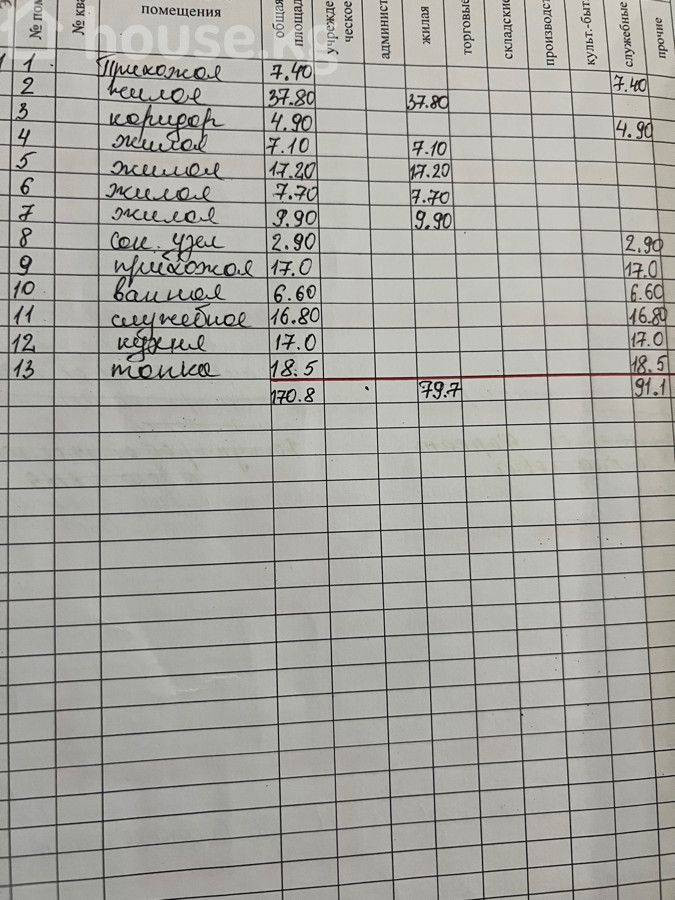 № пом
№ ква
помещения
общая площад
учрежде ческое
админист
жилая
торговые
складские
производст
культ.-быт
служебные
прочие
house.kg
1 Прихожая 7.40 7.40
2 жилая 37.80 37.80
3 коридор 4.90 4.90
4 жилая 7.10 7.10
5 жилая 17.20 17.20
6 жилая 7.70 7.70
7 жилая 9.90 9.90
8 сан. узел 2.90 2.90
9 прихожая 17.0 17.0
10 ванная 6.60 6.60
11 служебное 16.80 16.80
12 кухня 17.0 17.0
13 топка 18.5 18.5
170.8 79.7 91.1